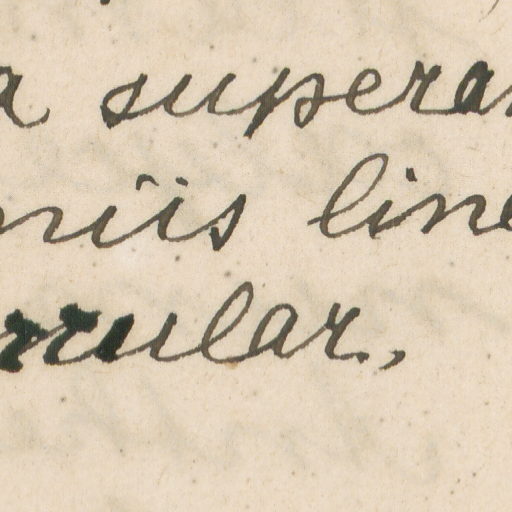 a superar
niis line
ular,